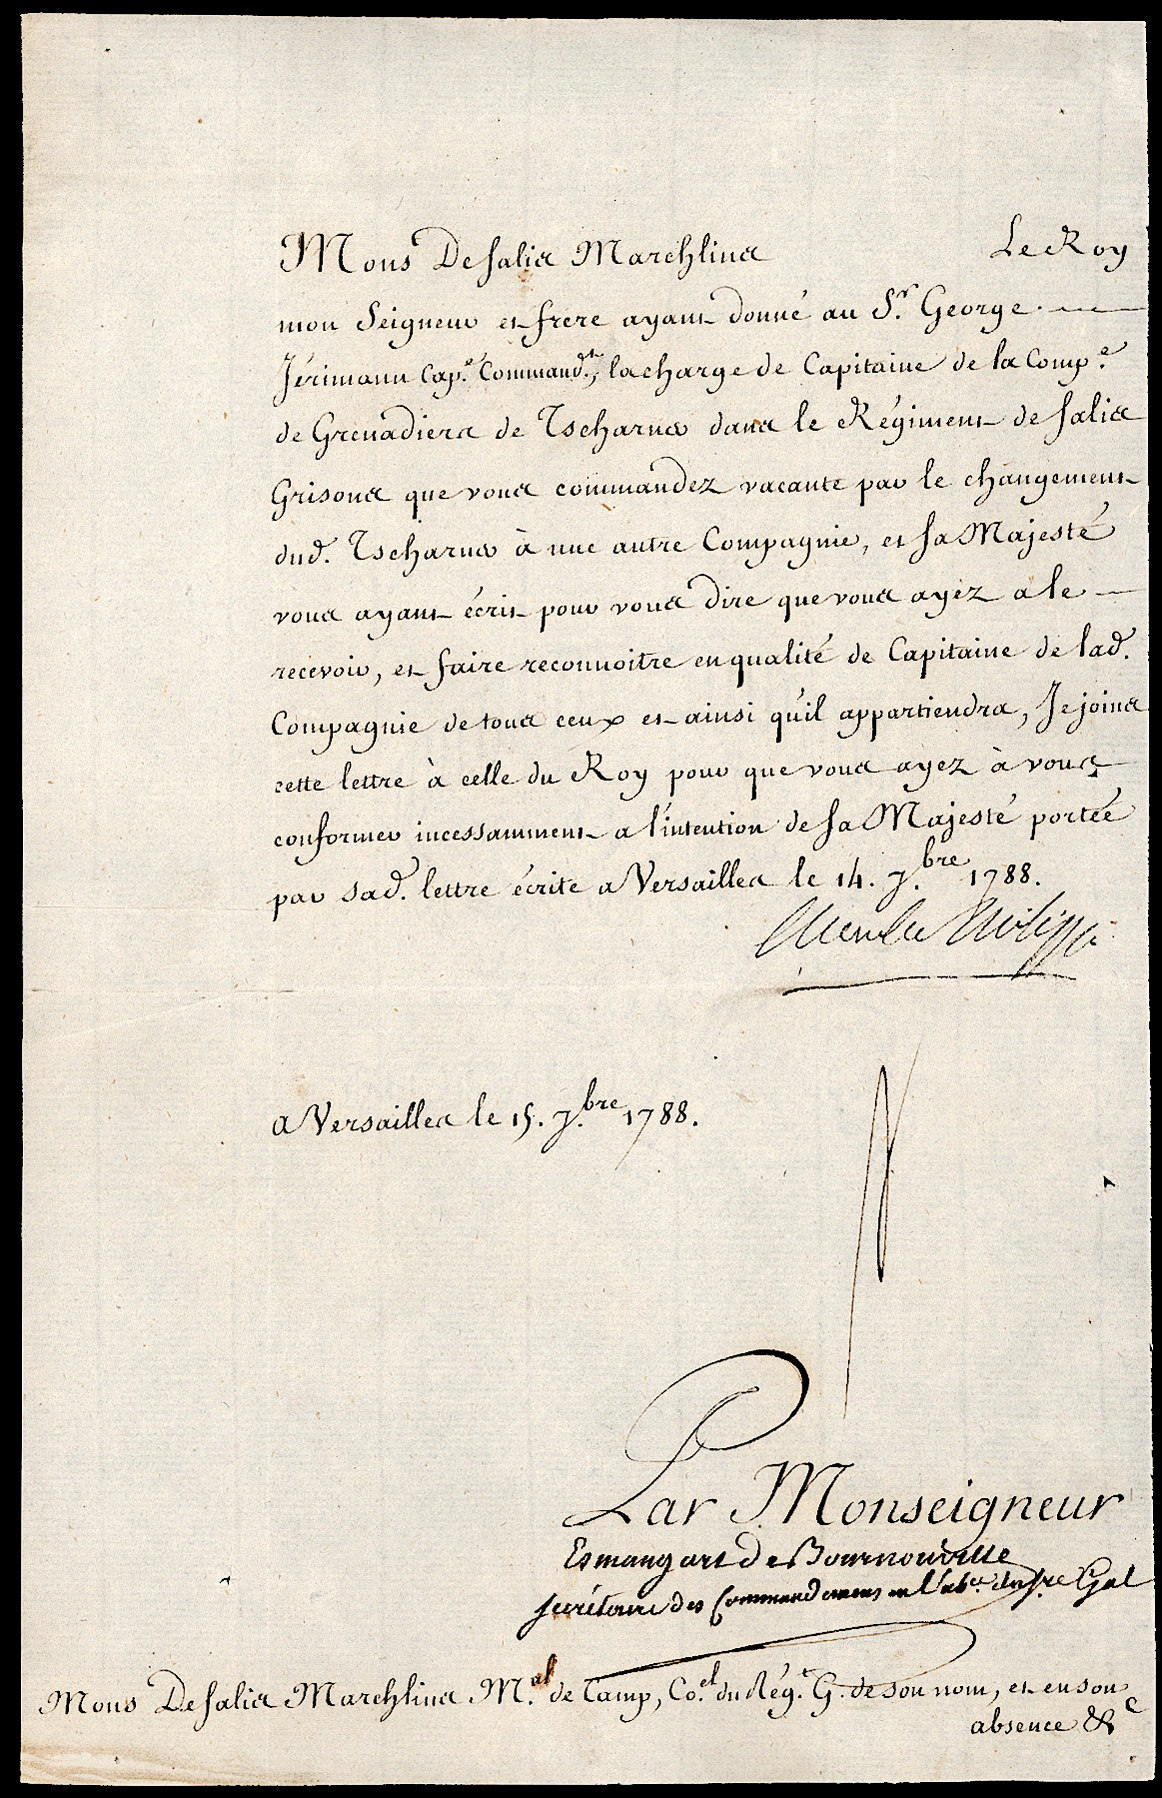 Mons De Salis Marchlins Le Roy
mon Seigneur et frere ayant donné au S.r George
Jérimann Cap.e Command.t, la charge de Capitaine de la Comp.e
de Grenadiers de Tscharner dans le Régiment de Salis
Grisons que vous commandez vacante par le changement
dud. Tscharner à une autre Compagnie, et Sa Majesté
vous ayant écrit pour vous dire que vous ayez a le
recevoir, et faire reconnoitre en qualité de Capitaine de lad.
Compagnie de tous ceux et ainsi qu'il appartiendra, Je joins
cette lettre à celle du Roy pour que vous ayez à vous
conformer incessamment a l'intention de Sa Majesté portée
par sad. lettre écrite a Versailles le 14. 7.bre 1788.
Charles Philippe
a Versailles le 15. 7.bre 1788.
Par Monseigneur
Esmangart de Bournonville
secrétaire des Commandemens en l'abce du Sre Gal
Mons De Salis Marchlins M.al de Camp, Co.el du Rég.t G. de son nom, et en son
absence &c